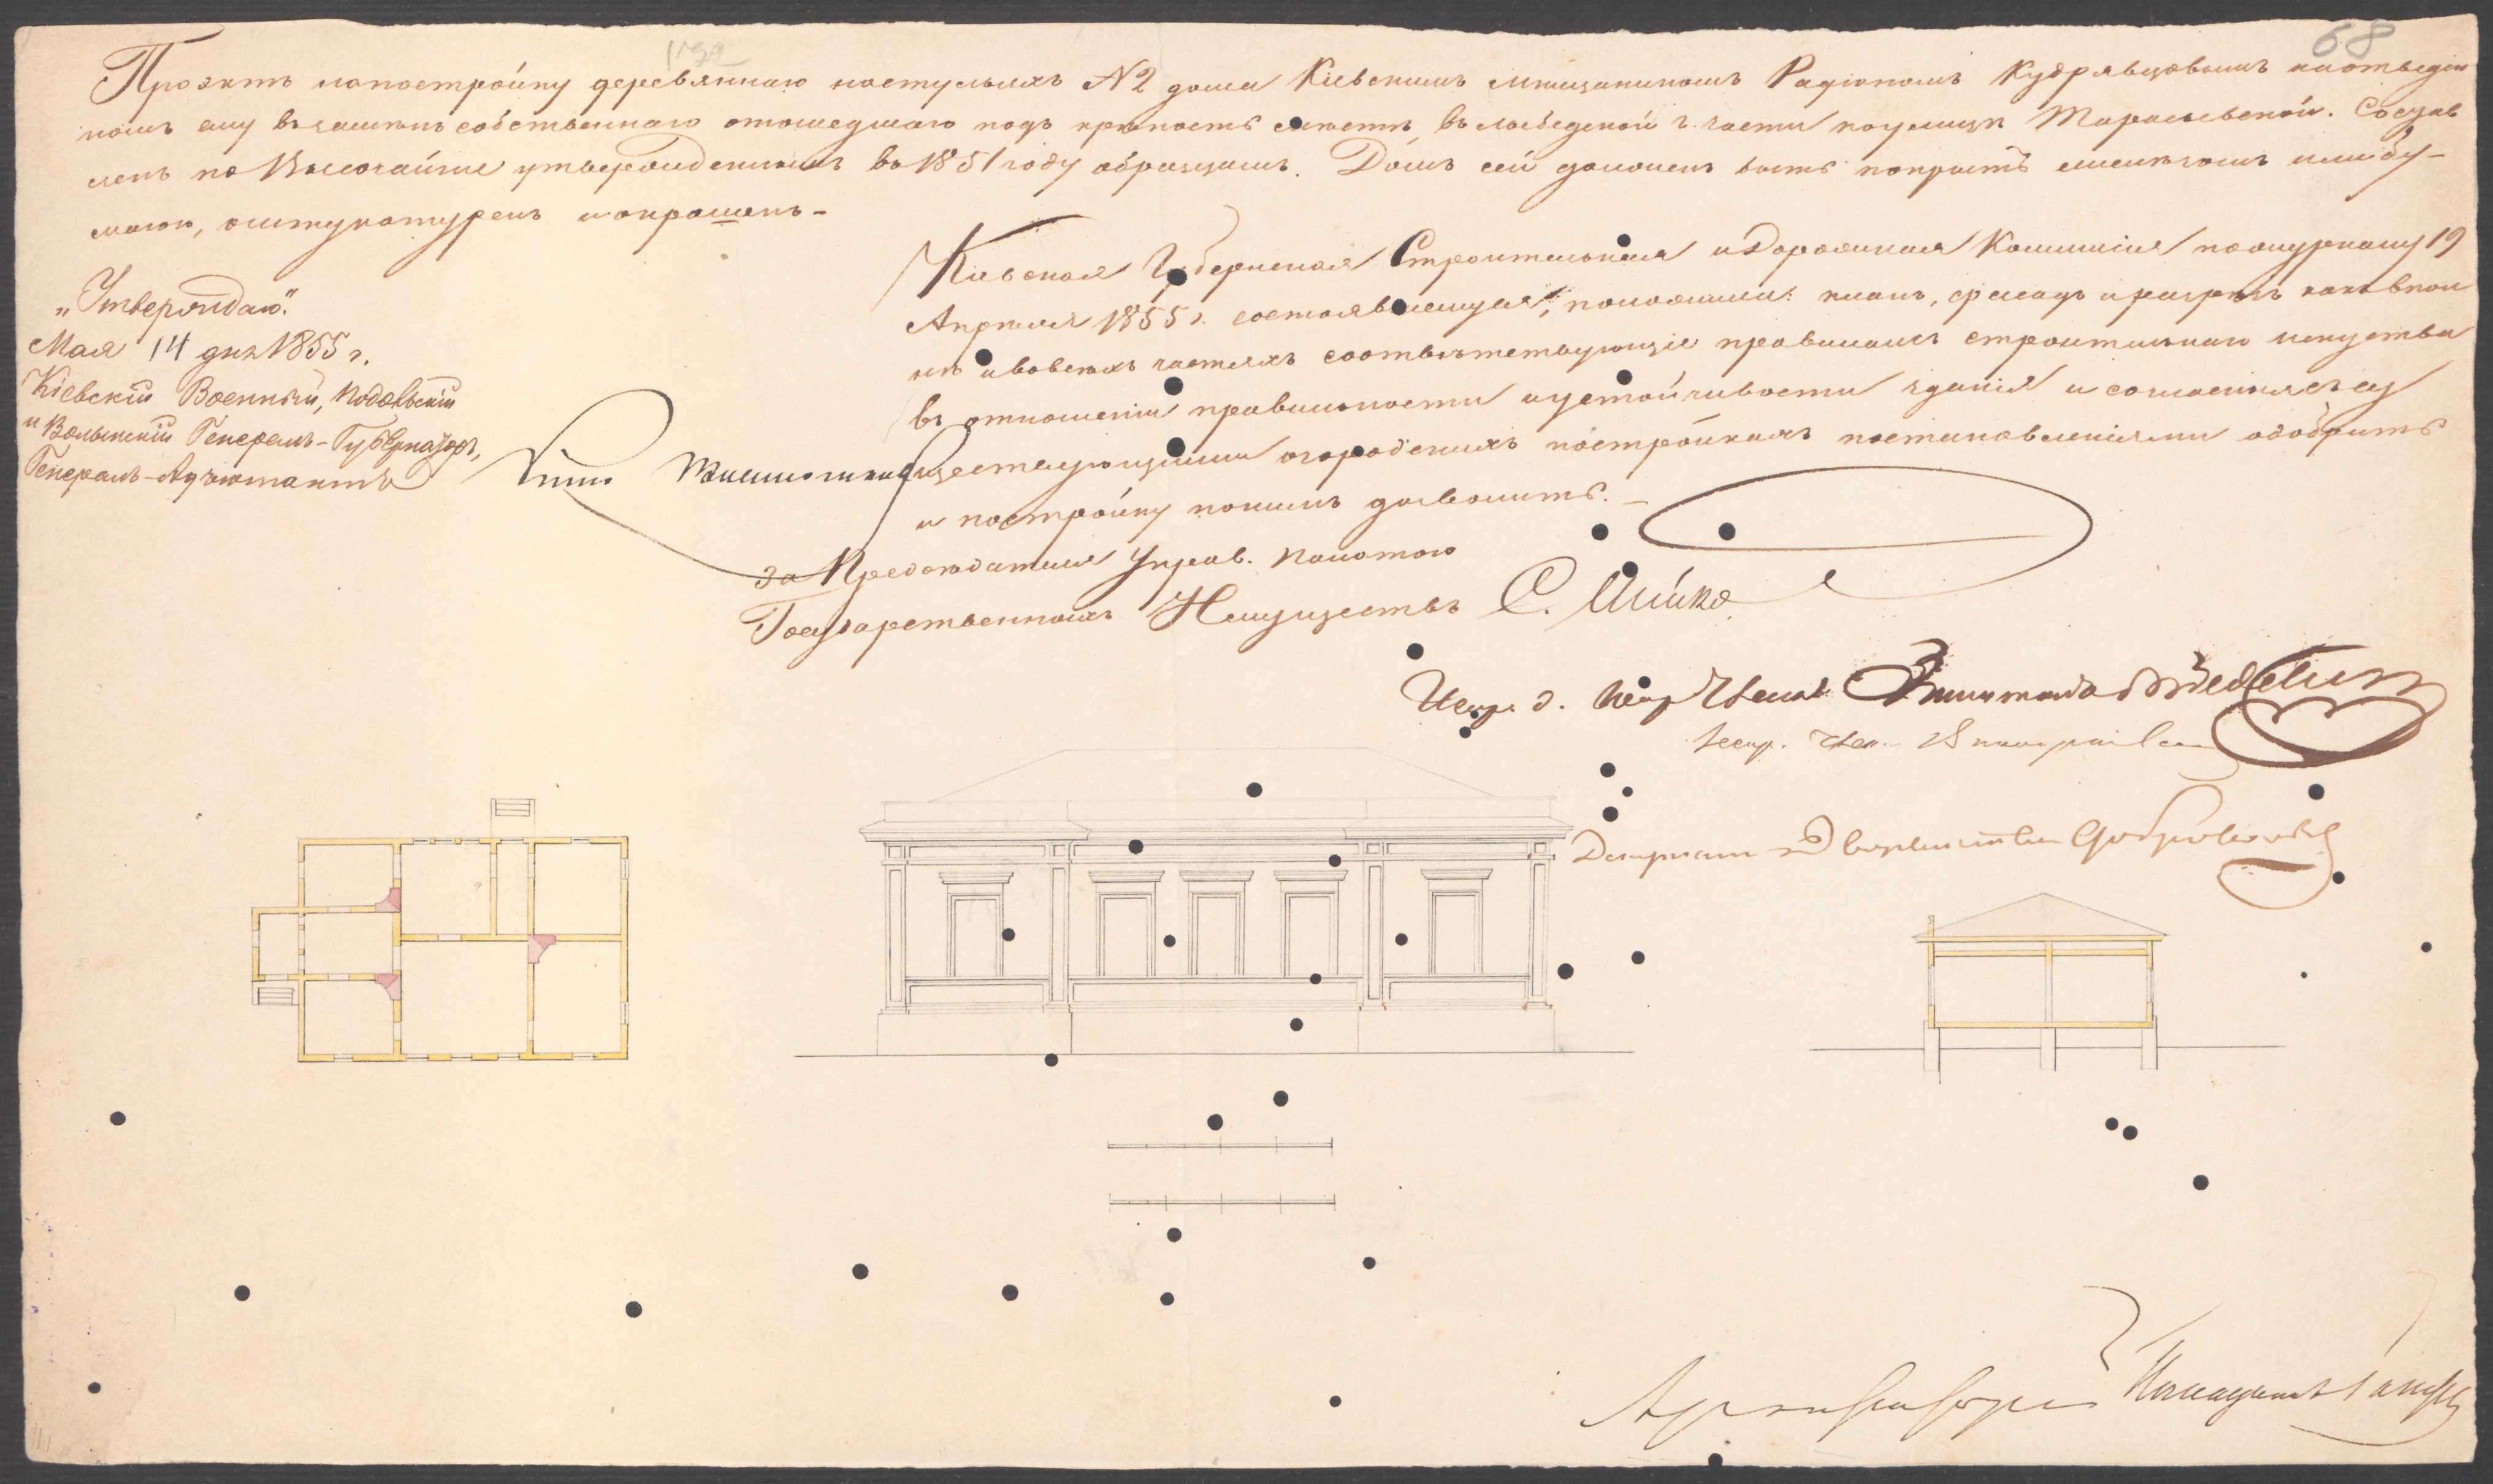 68
Проэктъ на постройку деревяннаго на стульяхъ №2 дома Кіевскимъ мѣщаниномъ Радіономъ Кудрявцовымъ на отведен
номъ ему взамѣнъ собственнаго отошедшаго подъ крѣпость мѣстѣ, въ Лыбедской г. части по улицѣ Тарасьевской. Состав
ленъ по Высочайше утвержденнымъ въ 1851 году образцамъ. Домъ сей долженъ быть покрытъ или бу-
магою, оштукатуренъ и окрашенъ-
„Утверждаю“.
Мая 14 дня 1855 г.
Кіевскій Военный, Подольскій
и Волынскій Генералъ-Губернаторъ,
Генералъ-Адъютантъ
Кіевская Губернская Строительная и Дорожная Коммисія по журналу 19
Апрѣля 1855 г. состоявшемуся, положила: планъ, фасадъ и разрѣзъ
и во всѣхъ частяхъ соотвѣтствующіе правиламъ строительнаго искуства
въ отношеніи правильности и устойчивости зданія и согласны съ су
ществующими о городскихъ постройкахъ постановленіями одобрить
и постройку по нимъ дозволить. –
За Предсѣдателя Управ. Палатою
Государственныхъ Имуществъ С.
Испр. д.
Депутатъ Дворянства
Архитекторъ